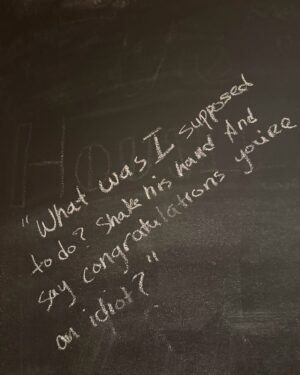 "What was I supposed
to do? Shake his hand And
say congratulations you're
an idiot?"